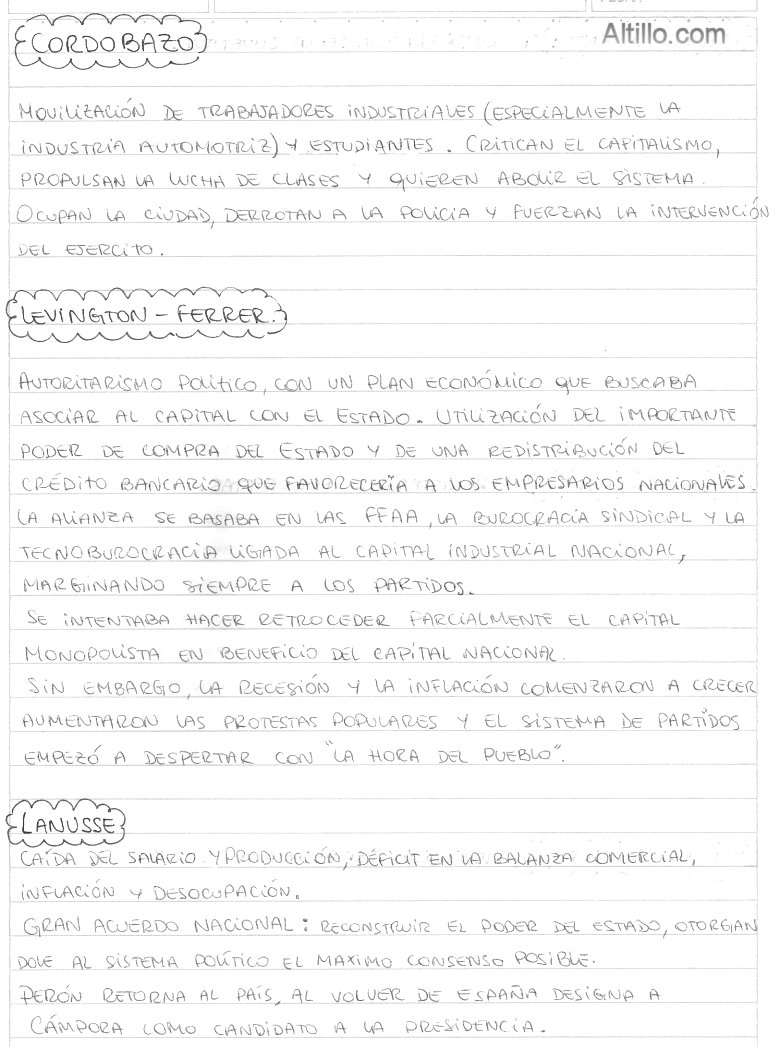 CORDOBAZO
Altillo.com
MOVILIZACIÓN DE TRABAJADORES INDUSTRIALES (ESPECIALMENTE LA
INDUSTRIA AUTOMOTRIZ) Y ESTUDIANTES. CRITICAN EL CAPITALISMO,
PROPULSAN LA LUCHA DE CLASES Y QUIEREN ABOLIR EL SISTEMA.
OCUPAN LA CIUDAD, DERROTAN A LA POLICIA Y FUERZAN LA INTERVENCIÓN
DEL EJERCITO.
LEVINGTON - FERRER.
AUTORITARISMO POLÍTICO, CON UN PLAN ECONÓMICO QUE BUSCABA
ASOCIAR AL CAPITAL CON EL ESTADO. UTILIZACIÓN DEL IMPORTANTE
PODER DE COMPRA DEL ESTADO Y DE UNA REDISTRIBUCIÓN DEL
CRÉDITO BANCARIO QUE FAVORECERÍA A LOS EMPRESARIOS NACIONALES.
LA ALIANZA SE BASABA EN LAS FFAA, LA BUROCRACIA SINDICAL Y LA
TECNOBUROCRACIA LIGADA AL CAPITAL INDUSTRIAL NACIONAL,
MARGINANDO SIEMPRE A LOS PARTIDOS.
SE INTENTABA HACER RETROCEDER PARCIALMENTE EL CAPITAL
MONOPOLISTA EN BENEFICIO DEL CAPITAL NACIONAL.
SIN EMBARGO, LA RECESIÓN Y LA INFLACIÓN COMENZARON A CRECER
AUMENTARON LAS PROTESTAS POPULARES Y EL SISTEMA DE PARTIDOS
EMPEZÓ A DESPERTAR CON "LA HORA DEL PUEBLO".
LANUSSE
CAÍDA DEL SALARIO Y PRODUCCIÓN, DÉFICIT EN LA BALANZA COMERCIAL,
INFLACIÓN Y DESOCUPACIÓN.
GRAN ACUERDO NACIONAL: RECONSTRUIR EL PODER DEL ESTADO, OTORGAN
DOLE AL SISTEMA POLÍTICO EL MAXIMO CONSENSO POSIBLE.
PERÓN RETORNA AL PAÍS, AL VOLVER DE ESPAÑA DESIGNA A
CÁMPORA COMO CANDIDATO A LA PRESIDENCIA.